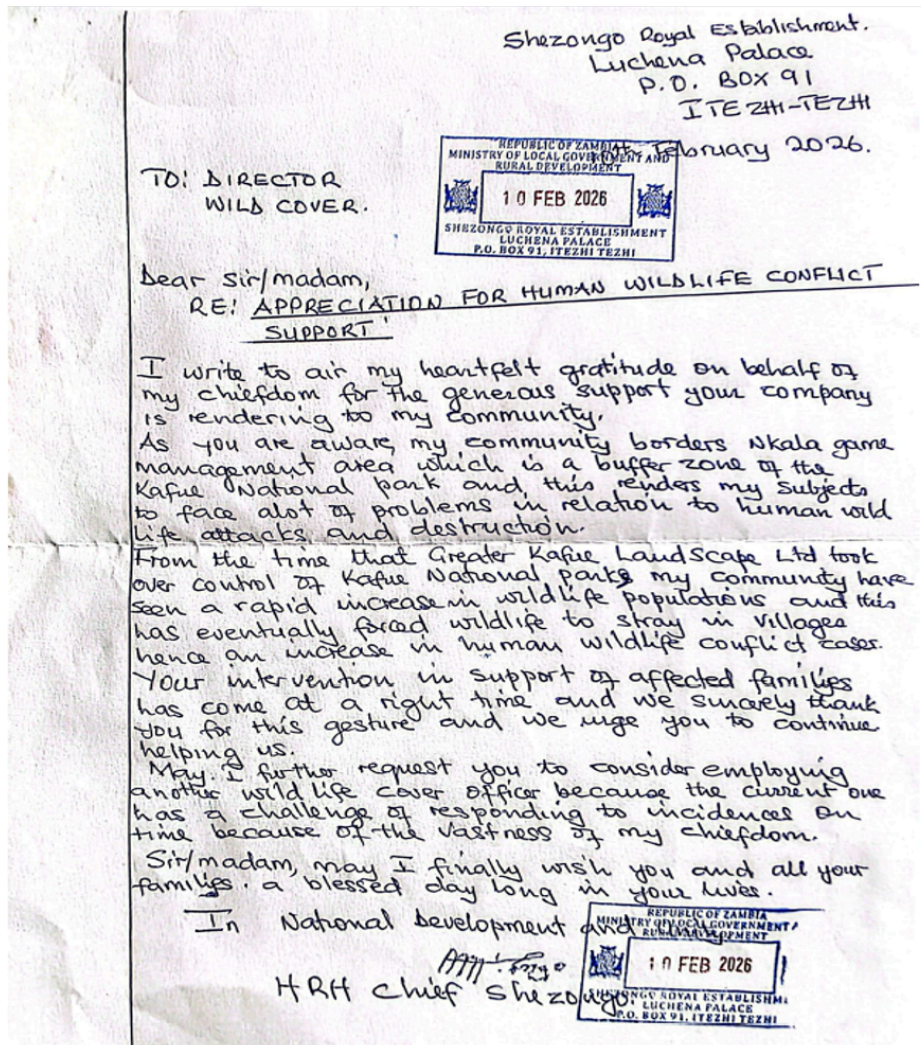 Shezongo Royal Establishment.
Luchena Palace
P.O. BOX 91
ITEZHI-TEZHI
February 2026.
REPUBLIC OF ZAMBIA
MINISTRY OF LOCAL GOVERNMENT AND
RURAL DEVELOPMENT
10 FEB 2026
SHEZONGO ROYAL ESTABLISHMENT
LUCHENA PALACE
P.O. BOX 91, ITEZHI TEZHI
TO: DIRECTOR
WILD COVER.
Dear Sir/madam,
RE: APPRECIATION FOR HUMAN WILDLIFE CONFLICT
SUPPORT.
I write to air my heartfelt gratitude on behalf of
my chiefdom for the generous support your company
is rendering to my community.
As you are aware, my community borders Nkala game
management area which is a buffer zone of the
Kafue National park and this renders my subjects
to face alot of problems in relation to human wild
life attacks and destruction.
From the time that Greater Kafue LandScape Ltd took
over control of Kafue National parks my community have
seen a rapid increase in wildlife populations and this
has eventually forced wildlife to stray in villages
hence an increase in human wildlife conflict cases.
Your intervention in support of affected families
has come at a right time and we sincerely thank
you for this gesture and we urge you to continue
helping us.
May I further request you to consider employing
another wild life cover officer because the current one
has a challenge of responding to incidences on
time because of the vastness of my chiefdom.
Sir/madam, may I finally wish you and all your
families. a blessed day long in your lives.
In National Development and
REPUBLIC OF ZAMBIA
MINISTRY OF LOCAL GOVERNMENT
RURAL DEVELOPMENT
10 FEB 2026
SHEZONGO ROYAL ESTABLISHM
LUCHENA PALACE
P.O. BOX 91, ITEZHI TEZHI
HRH Chief Shezongo.